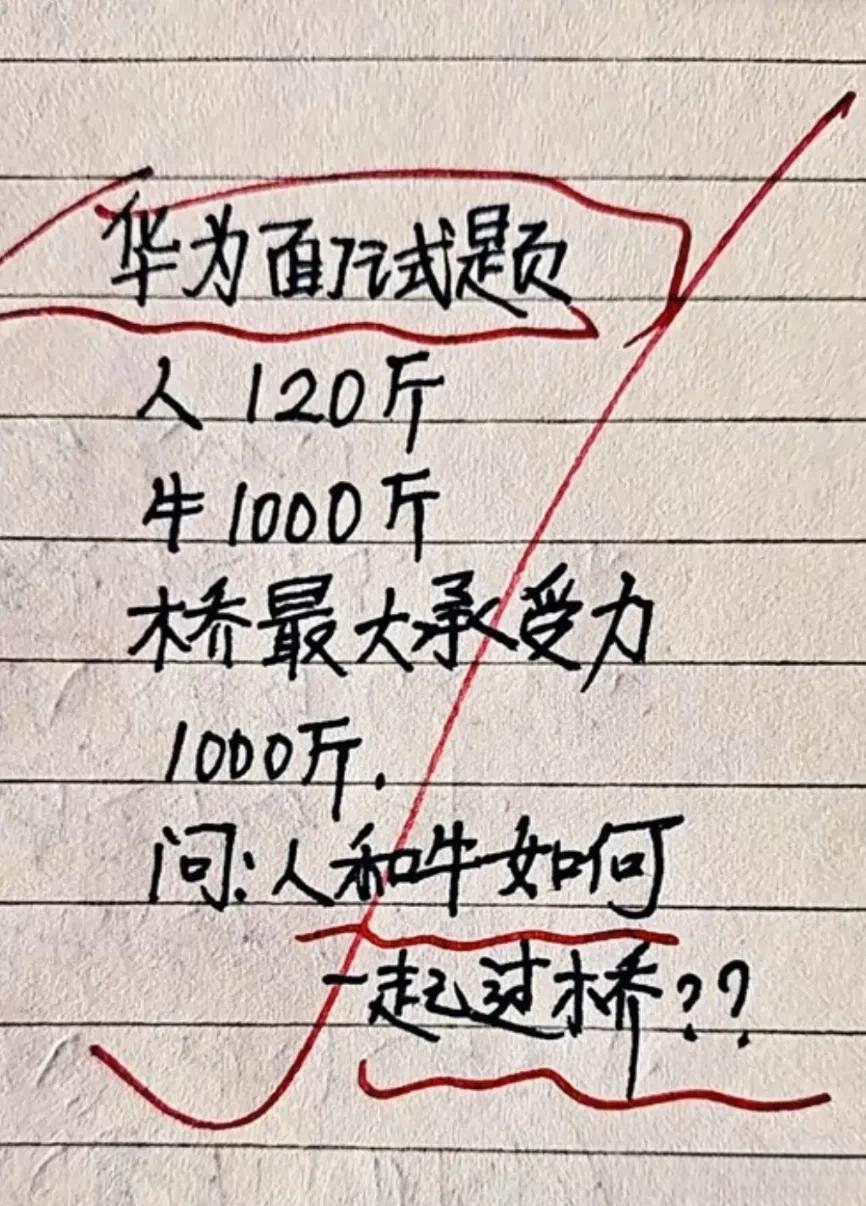 华为面试题
人120斤
牛1000斤
桥最大承受力
1000斤.
问:人和牛如何
一起过桥??